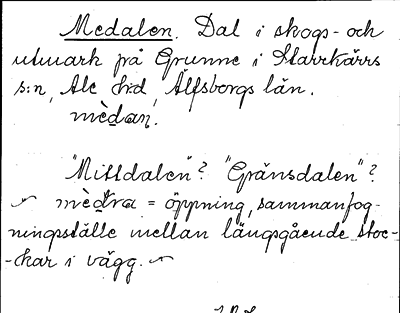 Medalen. Dal i skogs- och
utmark på Grunne i Starrkärrs
s:n, Ale hd Älfsborgs län.
mèdan.
"Mittdalen"? "Gränsdalen"?
mèdra = öppning, sammanfog-
ningsställe mellan längsgående stoc-
-kar i vägg.